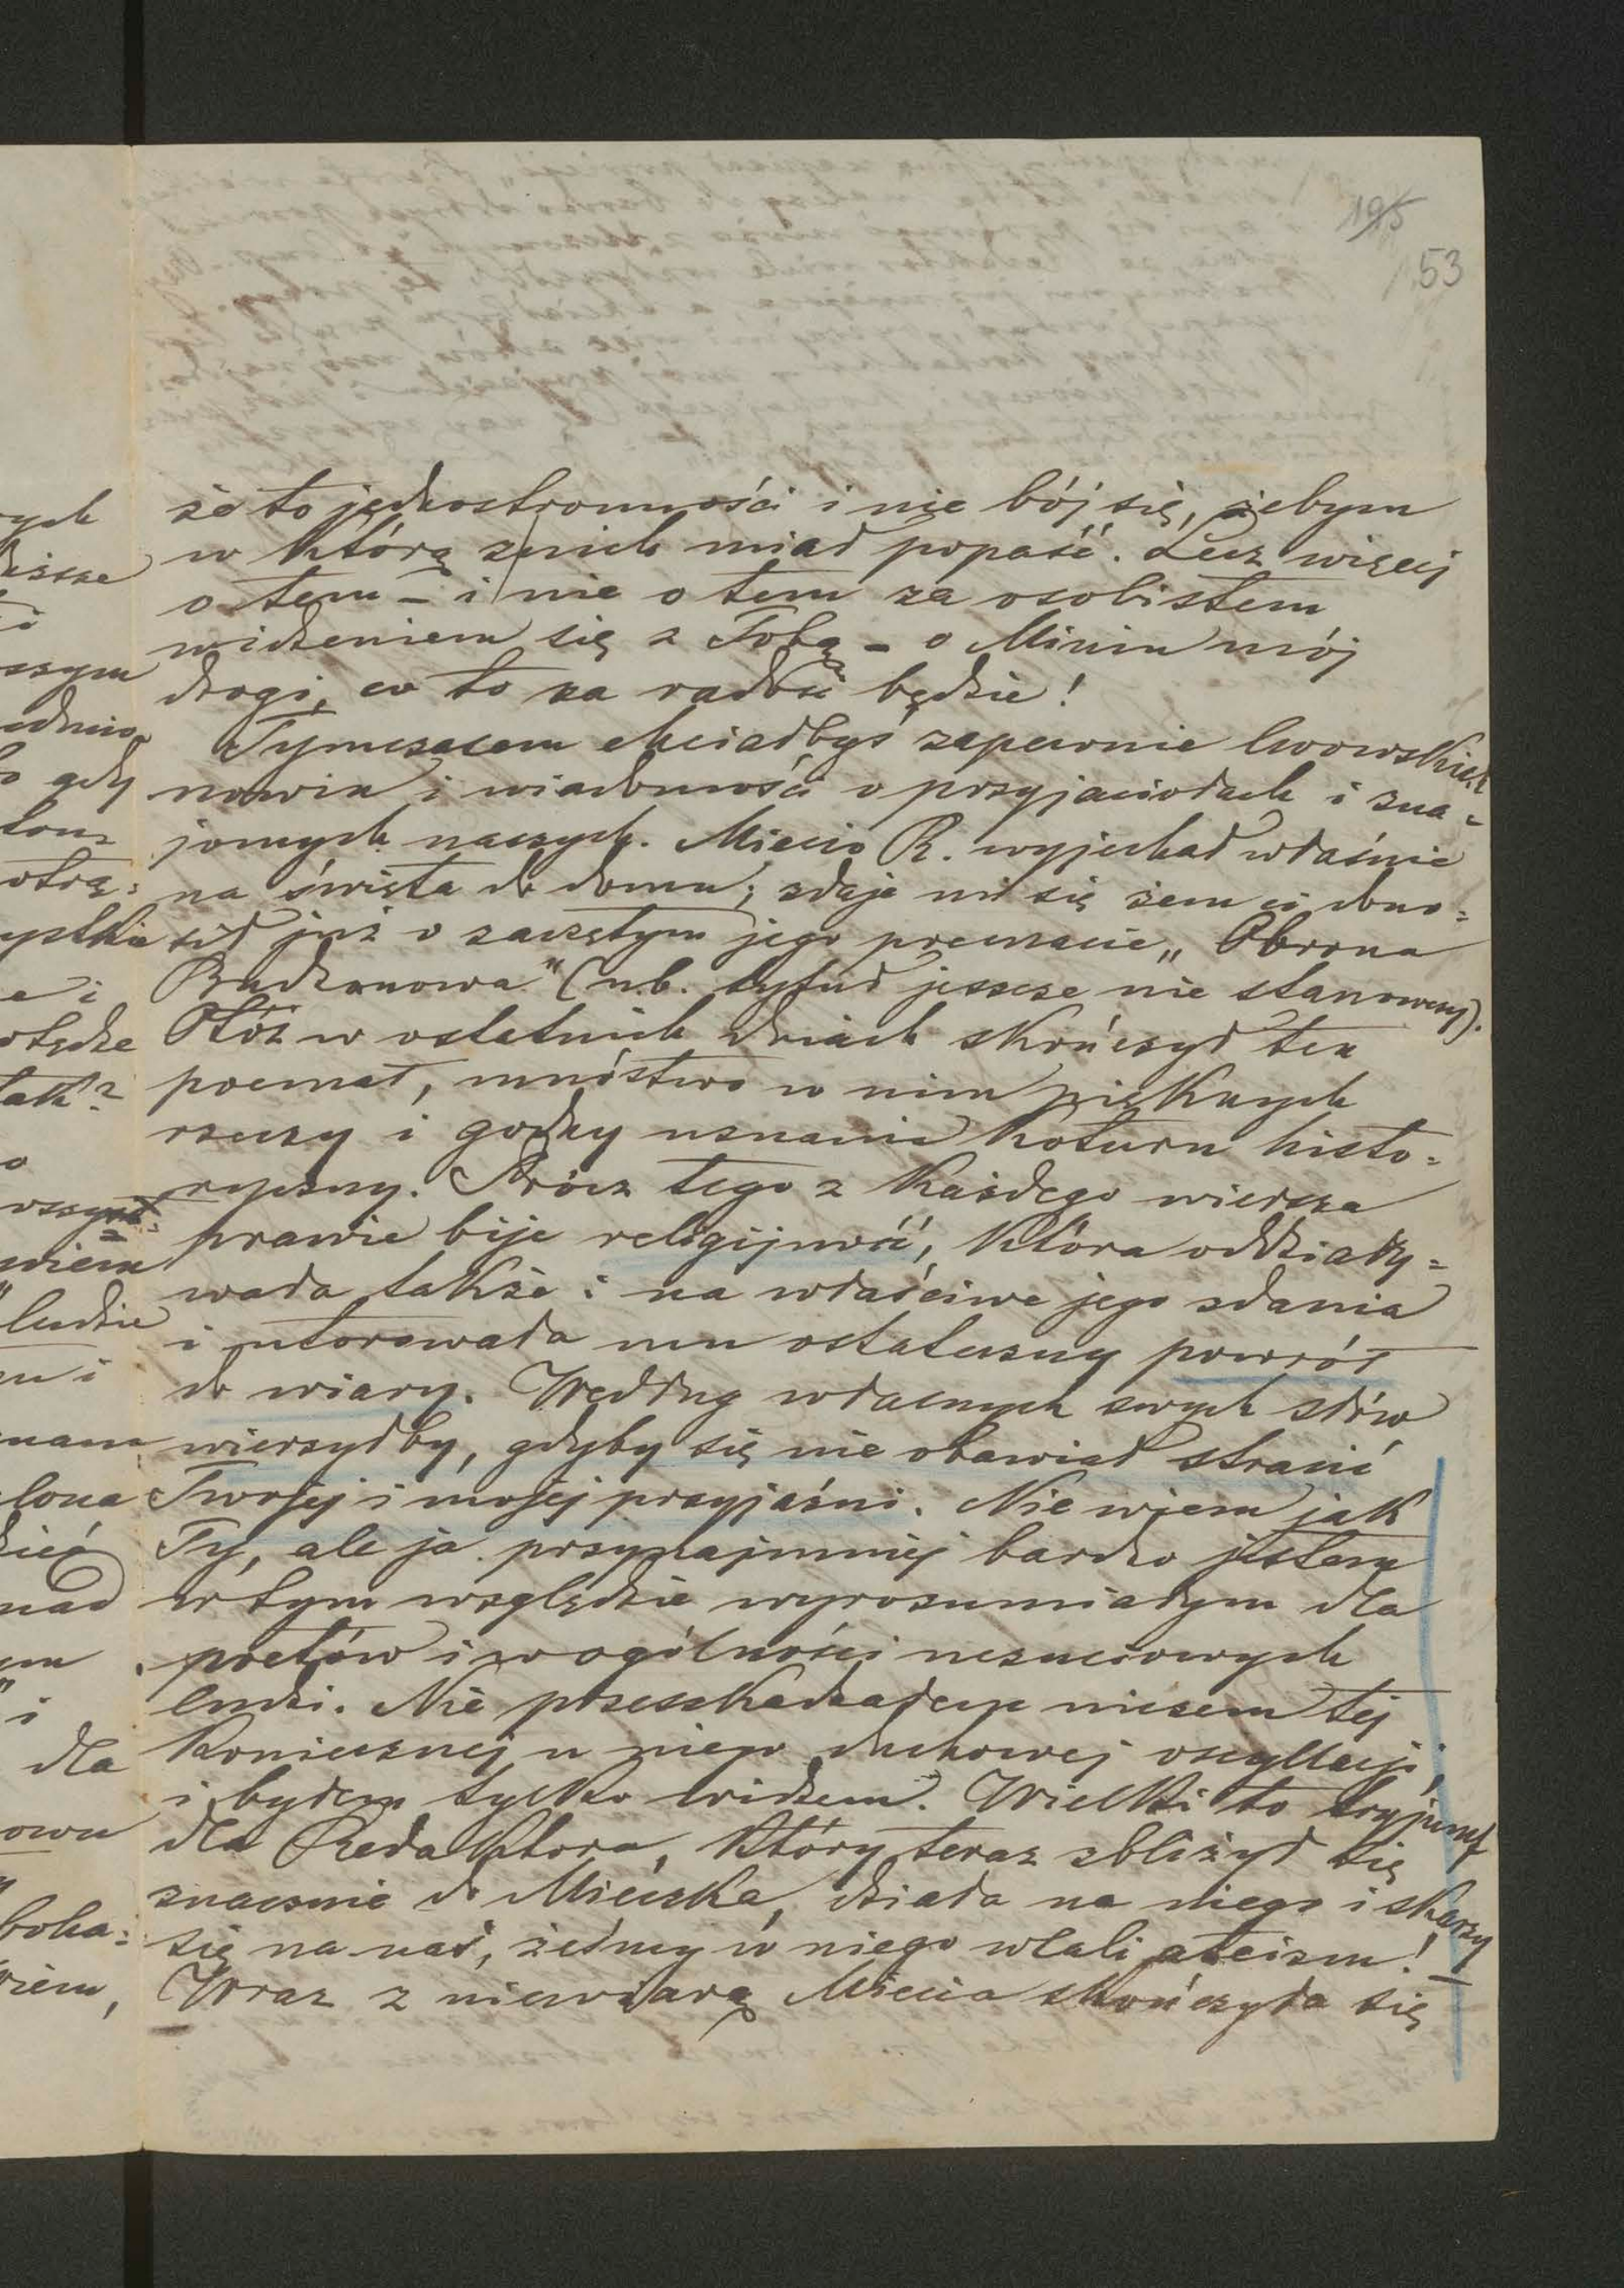 195
53
że to jednostronności i nie bój się, żebym
w którą z nich miał popaść. Lecz więcej
o tem – i nie o tem za osobistem
widzeniem się z Tobą – o Miniu mój
drogi, co to za radość będzie!
Tymczasem chciałbyś zapewnie lwowskich
nowin i wiadomości o przyjaciołach i zna=
jomych naszych. Miecio R. wyjechał właśnie
na święta do domu; zdaje mi się żem ci dono=
sił już o zaczętym jego poemacie „Obrona
Budzanowa" (nb. tytuł jeszcze nie stanowczy).
Otóż w ostatnich dniach skończył ten
poemat, mnóstwo w nim pięknych
rzeczy i godny uznania koturn histo=
ryczny. Prócz tego z każdego wiersza
prawie bije religijność, która oddziały=
wała także i na właściwe jego zdania
i utorowała mu ostateczny powrót
do wiary. Według własnych swych słów
wierzyłby, gdyby się nie obawiał stracić
Twojej i mojej przyjaźni. Nie wiem jak
Ty, ale ja przynajmniej bardzo jestem
w tym względzie wyrozumiałym dla
poetów i w ogólności uczuciowych
ludzi. Nie przeszkadzałem niczem tej
koniecznej u niego duchowej oscyllacji,
i byłem tylko widzem. Wielki to tryjumf
dla Redaktora, który teraz zbliżył się
znacznie do Mieczka, działa na niego i skarzy
się na nas, żeśmy w niego wlali ateizm!
Wraz z niewiarą Miecia skończyła się